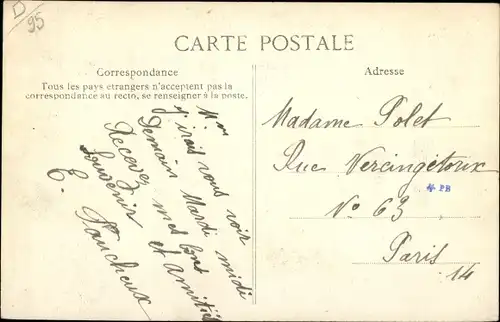 D
95
CARTE POSTALE
Correspondance
Tous les pays étrangers n'acceptent pas la
correspondance au recto, se renseigner à la poste.
Adresse
Mme
j'irais vous voir
Demain Mardi midi
Recevez mes bons
souvenir et amitiés
E. Faucheux
Madame Polet
Rue Vercingétorix
4 PB
No 63
Paris
14